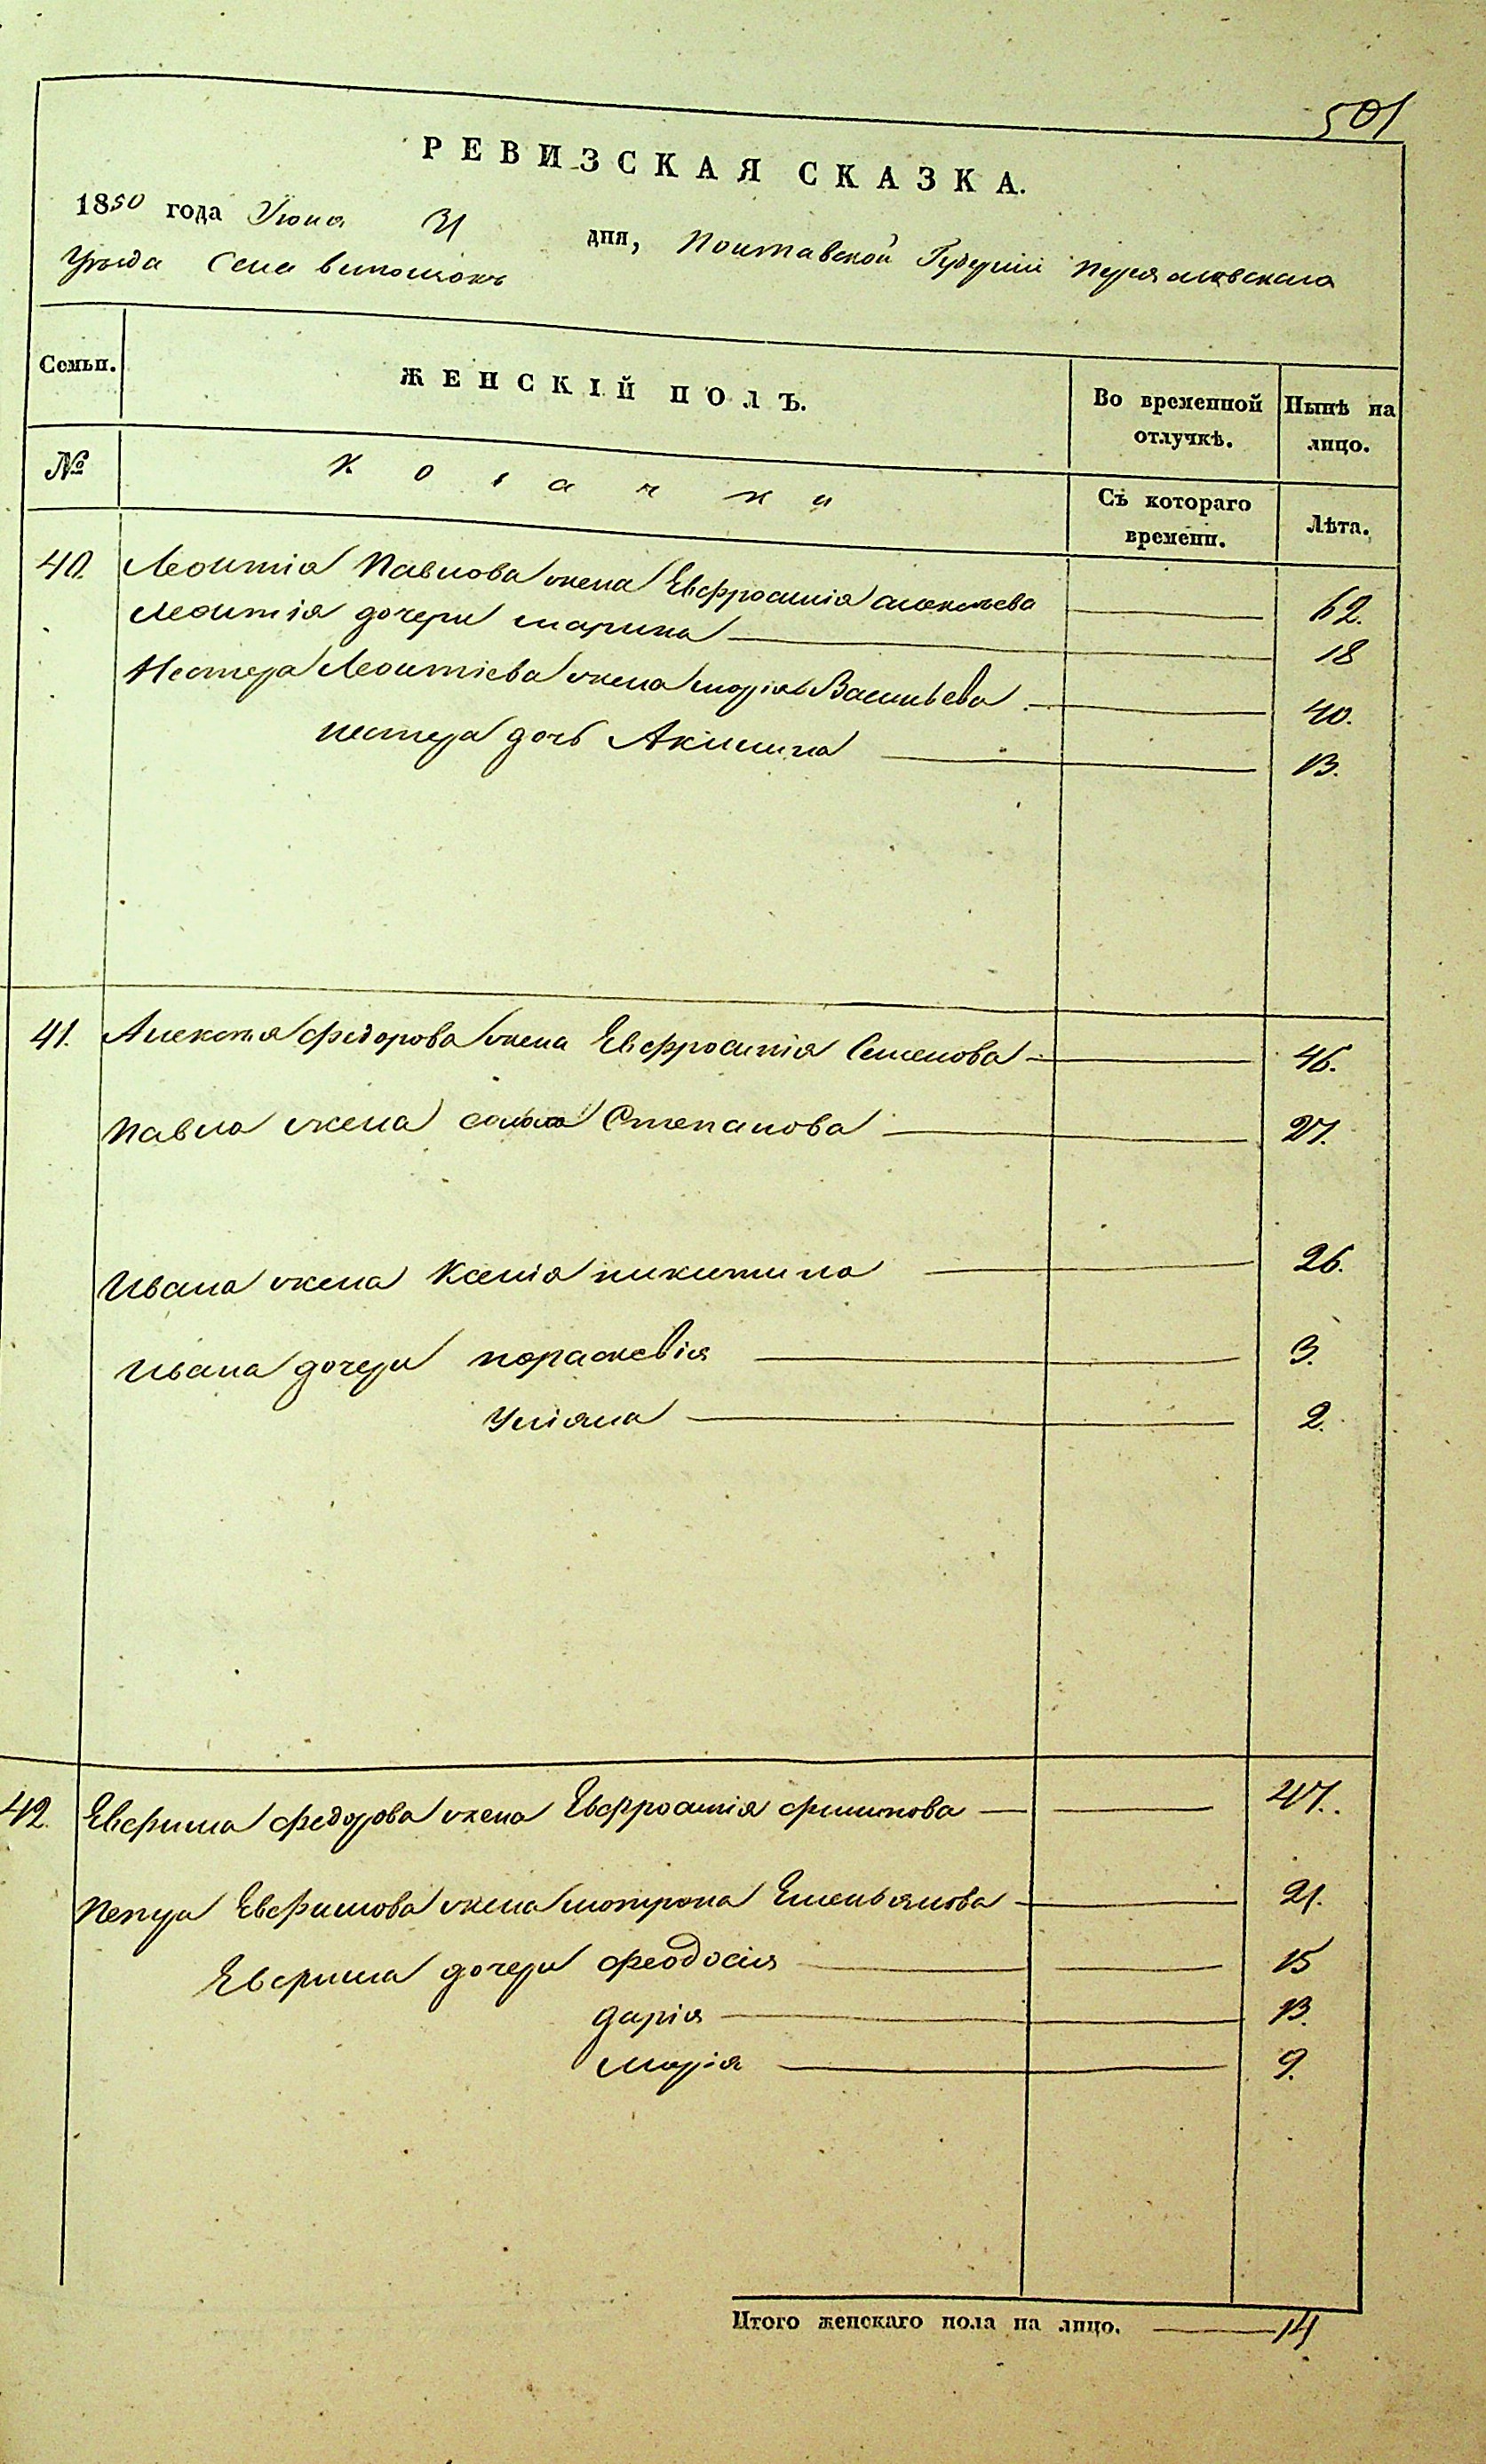 501
РЕВИЗСКАЯ СКАЗКА.
1850 года Июня дня, Полтавской Губернiи Переяславскаго
Уезда Села
Семьи. ЖЕНСКIЙ ПОЛЪ. Во временной отлучкѣ. Нынѣ на лицо.
№ Козачки Съ котораго времени. Лѣта.
40. Леонтiя Павлова жена Евфросинiя Алексѣева 62.
Леонтiя дочери Марина 18
Нестера Леонтiева жена Марiя Васильева 40.
Нестера дочь Акилина 13.
41. Алексея Федорова жена Евфросинiя Семенова 46.
Павла жена Степанова 27.
Ивана жена Ксенiя Никитина 26.
Ивана дочери Пораскевiя 3.
Улiяна 2.
42. Евфима Федорова жена Евфросинiя Филипова 47.
Петра Евфимова жена Мотрона Емельянова 21.
Евфима дочери Феодосiя 15
Дарiя 13.
Марiя 9.
Итого женскаго пола на лицо. 14